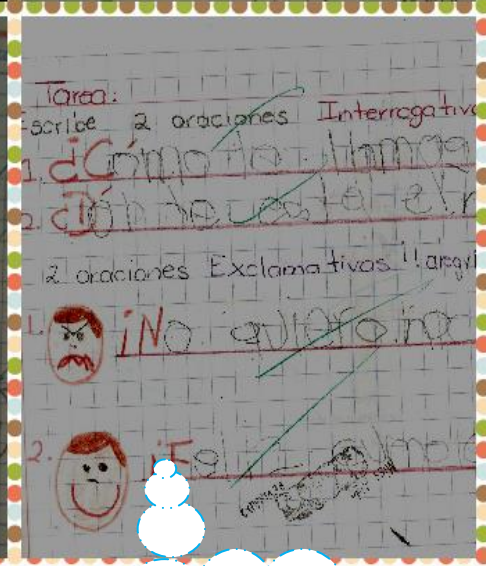 Tarea:
Escribe 2 oraciones Interrogativ
1. ¿Cómo te llamas
2. ¿Dónde est el
2 oraciones Exclamativas !! alegrí
1. ¡No quiero no
2. ¡Feliz cumple